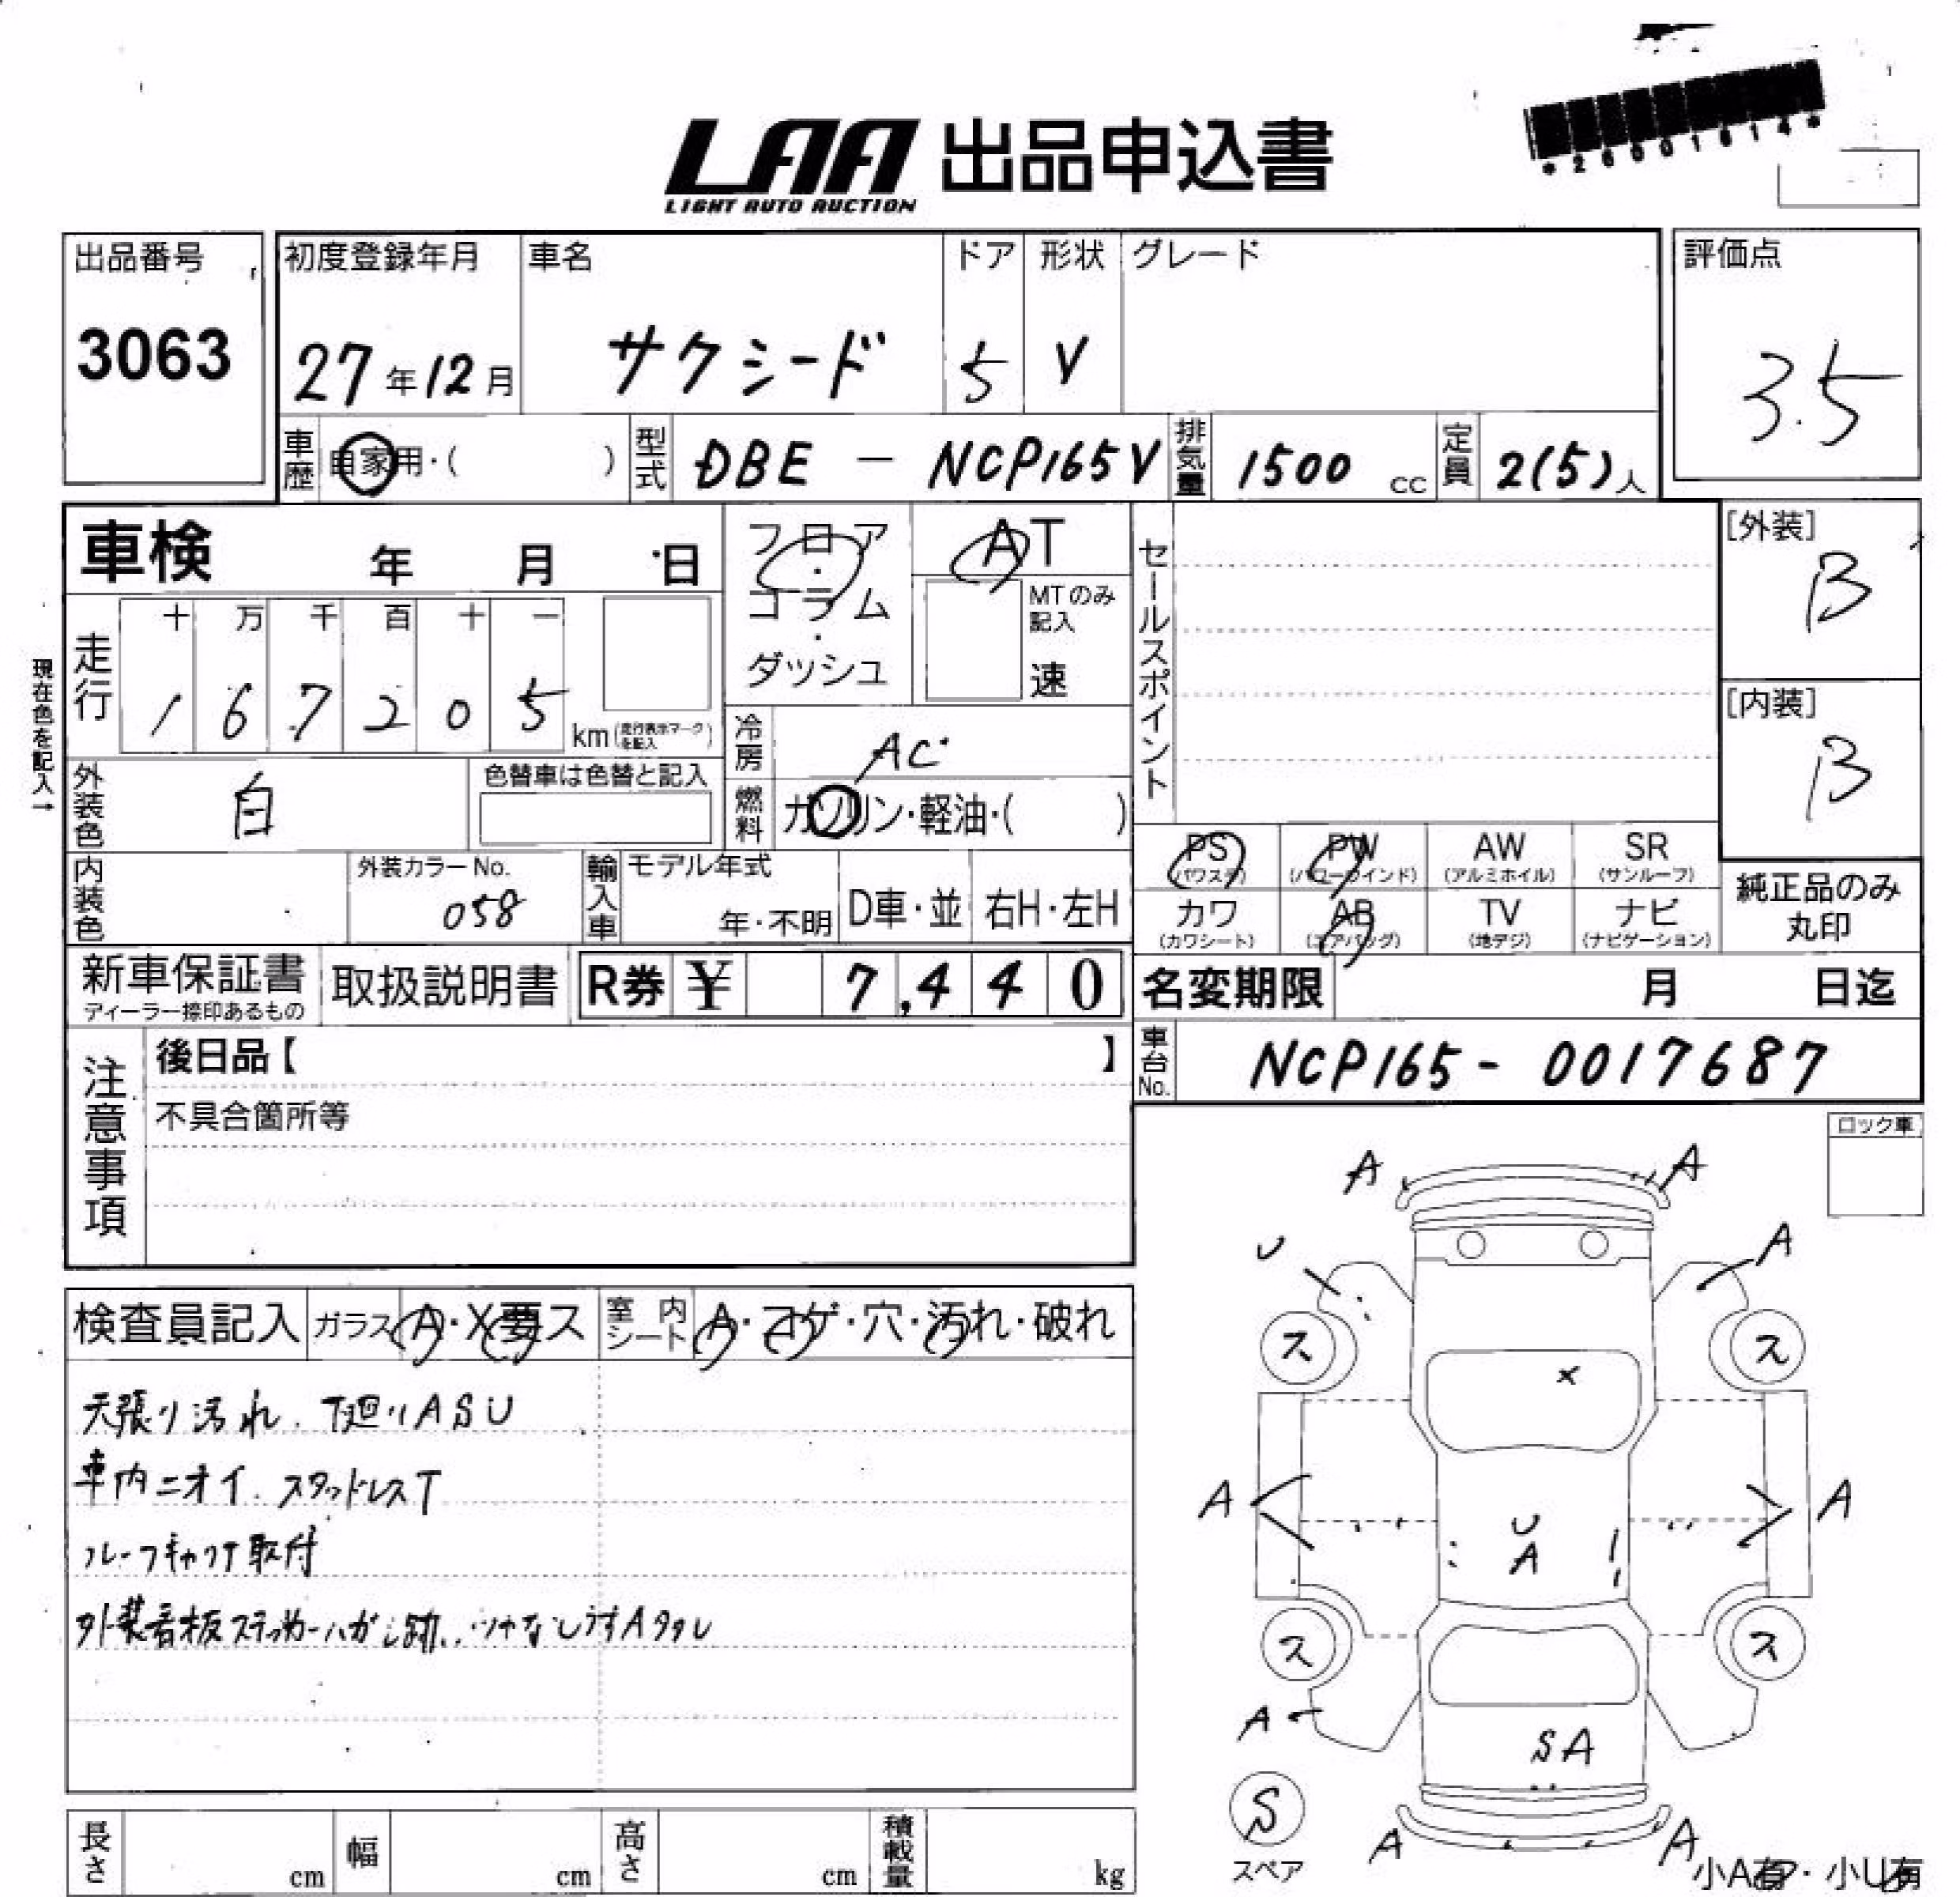 *26001614*
LAA 出品申込書
LIGHT AUTO AUCTION
出品番号 初度登録年月 車名 ドア 形状 グレード 評価点
3063 27年12月 サクシード 5 V 3.5
車歴 自家用・( ) 型式 DBE - NCP165V 排気量 1500 cc 定員 2(5)人
車検 年 月 日 フロア・コラム・ダッシュ AT セールスポイント [外装] B
MTのみ記入 速
現在色を記入→
走行 十 万 千 百 十 一
1 6 7 2 0 5 km(走行表示マークを記入) [内装] B
冷房 AC
外装色 白 色替車は色替と記入 燃料 ガソリン・軽油・( )
PS (パワステ) PW (パワーウインド) AW (アルミホイル) SR (サンルーフ)
内装色 外装カラーNo. 058 輸入車 モデル年式 年・不明 D車・並 右H・左H
カワ (カワシート) AB (エアバッグ) TV (地デジ) ナビ (ナビゲーション) 純正品のみ丸印
新車保証書 ディーラー捺印あるもの 取扱説明書 R券 ¥ 7,440 名変期限 月 日迄
注意事項 後日品【 】 車台No. NCP165-0017687
不具合箇所等
ロック車
検査員記入 ガラス A・X要ス 室内シート A・コゲ・穴・汚れ・破れ
天張り汚れ. 下廻りASU
車内ニオイ. スタッドレスT
ルーフキャリア取付
外装看板ステッカーハガシ跡.
A A
U A
ス ス
X
A A
U
A
ス ス
A
SA
S
スペア
A A
小A有・小U有
長さ cm 幅 cm 高さ cm 積載量 kg